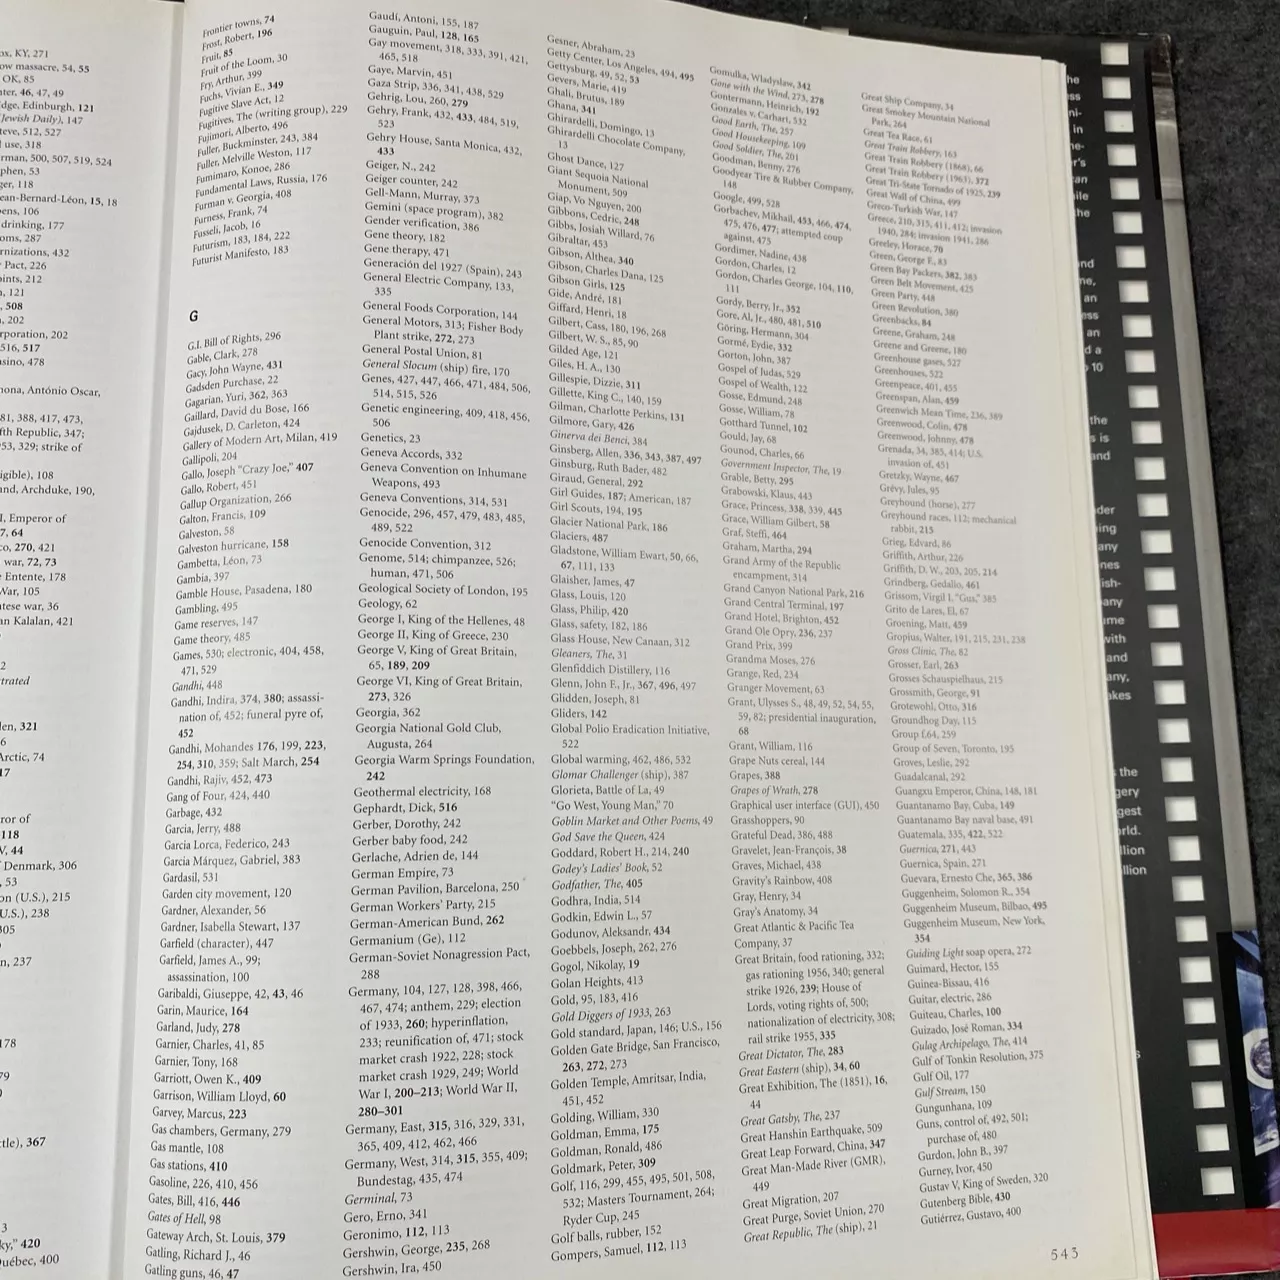 ox, KY, 271
ow massacre, 54, 55
OK, 85
ter, 46, 47, 49
dge, Edinburgh, 121
Jewish Daily), 147
teve, 512, 527
l use, 318
rman, 500, 507, 519, 524
phen, 53
ger, 118
ean-Bernard-Léon, 15, 18
ens, 106
drinking, 177
oms, 287
rnizations, 432
Pact, 226
oints, 212
, 121
, 508
, 202
rporation, 202
516, 517
sino, 478
nona, António Oscar,
81, 388, 417, 473,
fth Republic, 347;
53, 329; strike of
igible), 108
and, Archduke, 190,
I, Emperor of
7, 64
co, 270, 421
war, 72, 73
Entente, 178
War, 105
atese war, 36
an Kalalan, 421
2
trated
len, 321
6
Arctic, 74
17
ror of
118
V, 44
Denmark, 306
, 53
on (U.S.), 215
U.S.), 238
305
n, 237
178
79
tle), 367
3
ky," 420
Québec, 400
Frontier towns, 74
Frost, Robert, 196
Fruit, 85
Fruit of the Loom, 30
Fry, Arthur, 399
Fuchs, Vivian E., 349
Fugitive Slave Act, 12
Fugitives, The (writing group), 229
Fujimori, Alberto, 496
Fuller, Buckminster, 243, 384
Fuller, Melville Weston, 117
Fumimaro, Konoe, 286
Fundamental Laws, Russia, 176
Furman v. Georgia, 408
Furness, Frank, 74
Fuseli, Jacob, 16
Futurism, 183, 184, 222
Futurist Manifesto, 183
G
G.I. Bill of Rights, 296
Gable, Clark, 278
Gacy, John Wayne, 431
Gadsden Purchase, 22
Gagarian, Yuri, 362, 363
Gaillard, David du Bose, 166
Gajdusek, D. Carleton, 424
Gallery of Modern Art, Milan, 419
Gallipoli, 204
Gallo, Joseph "Crazy Joe," 407
Gallo, Robert, 451
Gallup Organization, 266
Galton, Francis, 109
Galveston, 58
Galveston hurricane, 158
Gambetta, Léon, 73
Gambia, 397
Gamble House, Pasadena, 180
Gambling, 495
Game reserves, 147
Game theory, 485
Games, 530; electronic, 404, 458,
471, 529
Gandhi, 448
Gandhi, Indira, 374, 380; assassi-
nation of, 452; funeral pyre of,
452
Gandhi, Mohandes 176, 199, 223,
254, 310, 359; Salt March, 254
Gandhi, Rajiv, 452, 473
Gang of Four, 424, 440
Garbage, 432
Garcia, Jerry, 488
Garcia Lorca, Federico, 243
Garcia Márquez, Gabriel, 383
Gardasil, 531
Garden city movement, 120
Gardner, Alexander, 56
Gardner, Isabella Stewart, 137
Garfield (character), 447
Garfield, James A., 99;
assassination, 100
Garibaldi, Giuseppe, 42, 43, 46
Garin, Maurice, 164
Garland, Judy, 278
Garnier, Charles, 41, 85
Garnier, Tony, 168
Garriott, Owen K., 409
Garrison, William Lloyd, 60
Garvey, Marcus, 223
Gas chambers, Germany, 279
Gas mantle, 108
Gas stations, 410
Gasoline, 226, 410, 456
Gates, Bill, 416, 446
Gates of Hell, 98
Gateway Arch, St. Louis, 379
Gatling, Richard J., 46
Gatling guns, 46, 47
Gaudí, Antoni, 155, 187
Gauguin, Paul, 128, 165
Gay movement, 318, 333, 391, 421,
465, 518
Gaye, Marvin, 451
Gaza Strip, 336, 341, 438, 529
Gehrig, Lou, 260, 279
Gehry, Frank, 432, 433, 484, 519,
523
Gehry House, Santa Monica, 432,
433
Geiger, N., 242
Geiger counter, 242
Gell-Mann, Murray, 373
Gemini (space program), 382
Gender verification, 386
Gene theory, 182
Gene therapy, 471
Generación del 1927 (Spain), 243
General Electric Company, 133,
335
General Foods Corporation, 144
General Motors, 313; Fisher Body
Plant strike, 272, 273
General Postal Union, 81
General Slocum (ship) fire, 170
Genes, 427, 447, 466, 471, 484, 506,
514, 515, 526
Genetic engineering, 409, 418, 456,
506
Genetics, 23
Geneva Accords, 332
Geneva Convention on Inhumane
Weapons, 493
Geneva Conventions, 314, 531
Genocide, 296, 457, 479, 483, 485,
489, 522
Genocide Convention, 312
Genome, 514; chimpanzee, 526;
human, 471, 506
Geological Society of London, 195
Geology, 62
George I, King of the Hellenes, 48
George II, King of Greece, 230
George V, King of Great Britain,
65, 189, 209
George VI, King of Great Britain,
273, 326
Georgia, 362
Georgia National Gold Club,
Augusta, 264
Georgia Warm Springs Foundation,
242
Geothermal electricity, 168
Gephardt, Dick, 516
Gerber, Dorothy, 242
Gerber baby food, 242
Gerlache, Adrien de, 144
German Empire, 73
German Pavilion, Barcelona, 250
German Workers' Party, 215
German-American Bund, 262
Germanium (Ge), 112
German-Soviet Nonagression Pact,
288
Germany, 104, 127, 128, 398, 466,
467, 474; anthem, 229; election
of 1933, 260; hyperinflation,
233; reunification of, 471; stock
market crash 1922, 228; stock
market crash 1929, 249; World
War I, 200–213; World War II,
280–301
Germany, East, 315, 316, 329, 331,
365, 409, 412, 462, 466
Germany, West, 314, 315, 355, 409;
Bundestag, 435, 474
Germinal, 73
Gero, Erno, 341
Geronimo, 112, 113
Gershwin, George, 235, 268
Gershwin, Ira, 450
Gesner, Abraham, 23
Getty Center, Los Angeles, 494, 495
Gettysburg, 49, 52, 53
Gevers, Marie, 419
Ghali, Brutus, 189
Ghana, 341
Ghirardelli, Domingo, 13
Ghirardelli Chocolate Company,
13
Ghost Dance, 127
Giant Sequoia National
Monument, 509
Giap, Vo Nguyen, 200
Gibbons, Cedric, 248
Gibbs, Josiah Willard, 76
Gibraltar, 453
Gibson, Althea, 340
Gibson, Charles Dana, 125
Gibson Girls, 125
Gide, André, 181
Giffard, Henri, 18
Gilbert, Cass, 180, 196, 268
Gilbert, W. S., 85, 90
Gilded Age, 121
Giles, H. A., 130
Gillespie, Dizzie, 311
Gillette, King C., 140, 159
Gilman, Charlotte Perkins, 131
Gilmore, Gary, 426
Ginerva dei Benci, 384
Ginsberg, Allen, 336, 343, 387, 497
Ginsburg, Ruth Bader, 482
Giraud, General, 292
Girl Guides, 187; American, 187
Girl Scouts, 194, 195
Glacier National Park, 186
Glaciers, 487
Gladstone, William Ewart, 50, 66,
67, 111, 133
Glaisher, James, 47
Glass, Louis, 120
Glass, Philip, 420
Glass, safety, 182, 186
Glass House, New Canaan, 312
Gleaners, The, 31
Glenfiddich Distillery, 116
Glenn, John F., Jr., 367, 496, 497
Glidden, Joseph, 81
Gliders, 142
Global Polio Eradication Initiative,
522
Global warming, 462, 486, 532
Glomar Challenger (ship), 387
Glorieta, Battle of La, 49
"Go West, Young Man," 70
Goblin Market and Other Poems, 49
God Save the Queen, 424
Goddard, Robert H., 214, 240
Godey's Ladies' Book, 52
Godfather, The, 405
Godhra, India, 514
Godkin, Edwin L., 57
Godunov, Aleksandr, 434
Goebbels, Joseph, 262, 276
Gogol, Nikolay, 19
Golan Heights, 413
Gold, 95, 183, 416
Gold Diggers of 1933, 263
Gold standard, Japan, 146; U.S., 156
Golden Gate Bridge, San Francisco,
263, 272, 273
Golden Temple, Amritsar, India,
451, 452
Golding, William, 330
Goldman, Emma, 175
Goldman, Ronald, 486
Goldmark, Peter, 309
Golf, 116, 299, 455, 495, 501, 508,
532; Masters Tournament, 264;
Ryder Cup, 245
Golf balls, rubber, 152
Gompers, Samuel, 112, 113
Gomulka, Wladyslaw, 342
Gone with the Wind, 273, 278
Gontermann, Heinrich, 192
Gonzales v. Carhart, 532
Good Earth, The, 257
Good Housekeeping, 109
Good Soldier, The, 201
Goodman, Benny, 276
Goodyear Tire & Rubber Company,
148
Google, 499, 528
Gorbachev, Mikhail, 453, 466, 474,
475, 476, 477; attempted coup
against, 475
Gordimer, Nadine, 438
Gordon, Charles, 12
Gordon, Charles George, 104, 110,
111
Gordy, Berry, Jr., 352
Gore, Al, Jr., 480, 481, 510
Göring, Hermann, 304
Gormé, Eydie, 332
Gorton, John, 387
Gospel of Judas, 529
Gospel of Wealth, 122
Gosse, Edmund, 248
Gosse, William, 78
Gotthard Tunnel, 102
Gould, Jay, 68
Gounod, Charles, 66
Government Inspector, The, 19
Grable, Betty, 295
Grabowski, Klaus, 443
Grace, Princess, 338, 339, 445
Grace, William Gilbert, 58
Graf, Steffi, 464
Graham, Martha, 294
Grand Army of the Republic
encampment, 314
Grand Canyon National Park, 216
Grand Central Terminal, 197
Grand Hotel, Brighton, 452
Grand Ole Opry, 236, 237
Grand Prix, 399
Grandma Moses, 276
Grange, Red, 234
Granger Movement, 63
Grant, Ulysses S., 48, 49, 52, 54, 55,
59, 82; presidential inauguration,
68
Grant, William, 116
Grape Nuts cereal, 144
Grapes, 388
Grapes of Wrath, 278
Graphical user interface (GUI), 450
Grasshoppers, 90
Grateful Dead, 386, 488
Gravelet, Jean-François, 38
Graves, Michael, 438
Gravity's Rainbow, 408
Gray, Henry, 34
Gray's Anatomy, 34
Great Atlantic & Pacific Tea
Company, 37
Great Britain, food rationing, 332;
gas rationing 1956, 340; general
strike 1926, 239; House of
Lords, voting rights of, 500;
nationalization of electricity, 308;
rail strike 1955, 335
Great Dictator, The, 283
Great Eastern (ship), 34, 60
Great Exhibition, The (1851), 16,
44
Great Gatsby, The, 237
Great Hanshin Earthquake, 509
Great Leap Forward, China, 347
Great Man-Made River (GMR),
449
Great Migration, 207
Great Purge, Soviet Union, 270
Great Republic, The (ship), 21
Great Ship Company, 34
Great Smokey Mountain National
Park, 264
Great Tea Race, 61
Great Train Robbery, 163
Great Train Robbery (1868), 66
Great Train Robbery (1963), 372
Great Tri-State Tornado of 1925, 239
Great Wall of China, 499
Greco-Turkish War, 147
Greece, 210, 315, 411, 412; invasion
1940, 284; invasion 1941, 286
Greeley, Horace, 70
Green, George F., 83
Green Bay Packers, 382, 383
Green Belt Movement, 425
Green Party, 448
Green Revolution, 380
Greenbacks, 84
Greene, Graham, 248
Greene and Greene, 180
Greenhouse gases, 527
Greenhouses, 522
Greenpeace, 401, 455
Greenspan, Alan, 459
Greenwich Mean Time, 236, 389
Greenwood, Colin, 478
Greenwood, Johnny, 478
Grenada, 34, 385, 414; U.S.
invasion of, 451
Gretzky, Wayne, 467
Grévy, Jules, 95
Greyhound (horse), 277
Greyhound races, 112; mechanical
rabbit, 215
Grieg, Edvard, 86
Griffith, Arthur, 226
Griffith, D. W., 203, 205, 214
Grindberg, Gedalio, 461
Grissom, Virgil I. "Gus," 385
Grito de Lares, El, 67
Groening, Matt, 459
Gropius, Walter, 191, 215, 231, 238
Gross Clinic, The, 82
Grosser, Earl, 263
Grosses Schauspielhaus, 215
Grossmith, George, 91
Grotewohl, Otto, 316
Groundhog Day, 115
Group f.64, 259
Group of Seven, Toronto, 195
Groves, Leslie, 292
Guadalcanal, 292
Guangxu Emperor, China, 148, 181
Guantanamo Bay, Cuba, 149
Guantanamo Bay naval base, 491
Guatemala, 335, 422, 522
Guernica, 271, 443
Guernica, Spain, 271
Guevara, Ernesto Che, 365, 386
Guggenheim, Solomon R., 354
Guggenheim Museum, Bilbao, 495
Guggenheim Museum, New York,
354
Guiding Light soap opera, 272
Guimard, Hector, 155
Guinea-Bissau, 416
Guitar, electric, 286
Guiteau, Charles, 100
Guizado, José Roman, 334
Gulag Archipelago, The, 414
Gulf of Tonkin Resolution, 375
Gulf Oil, 177
Gulf Stream, 150
Gungunhana, 109
Guns, control of, 492, 501;
purchase of, 480
Gurdon, John B., 397
Gurney, Ivor, 450
Gustav V, King of Sweden, 320
Gutenberg Bible, 430
Gutiérrez, Gustavo, 400
543